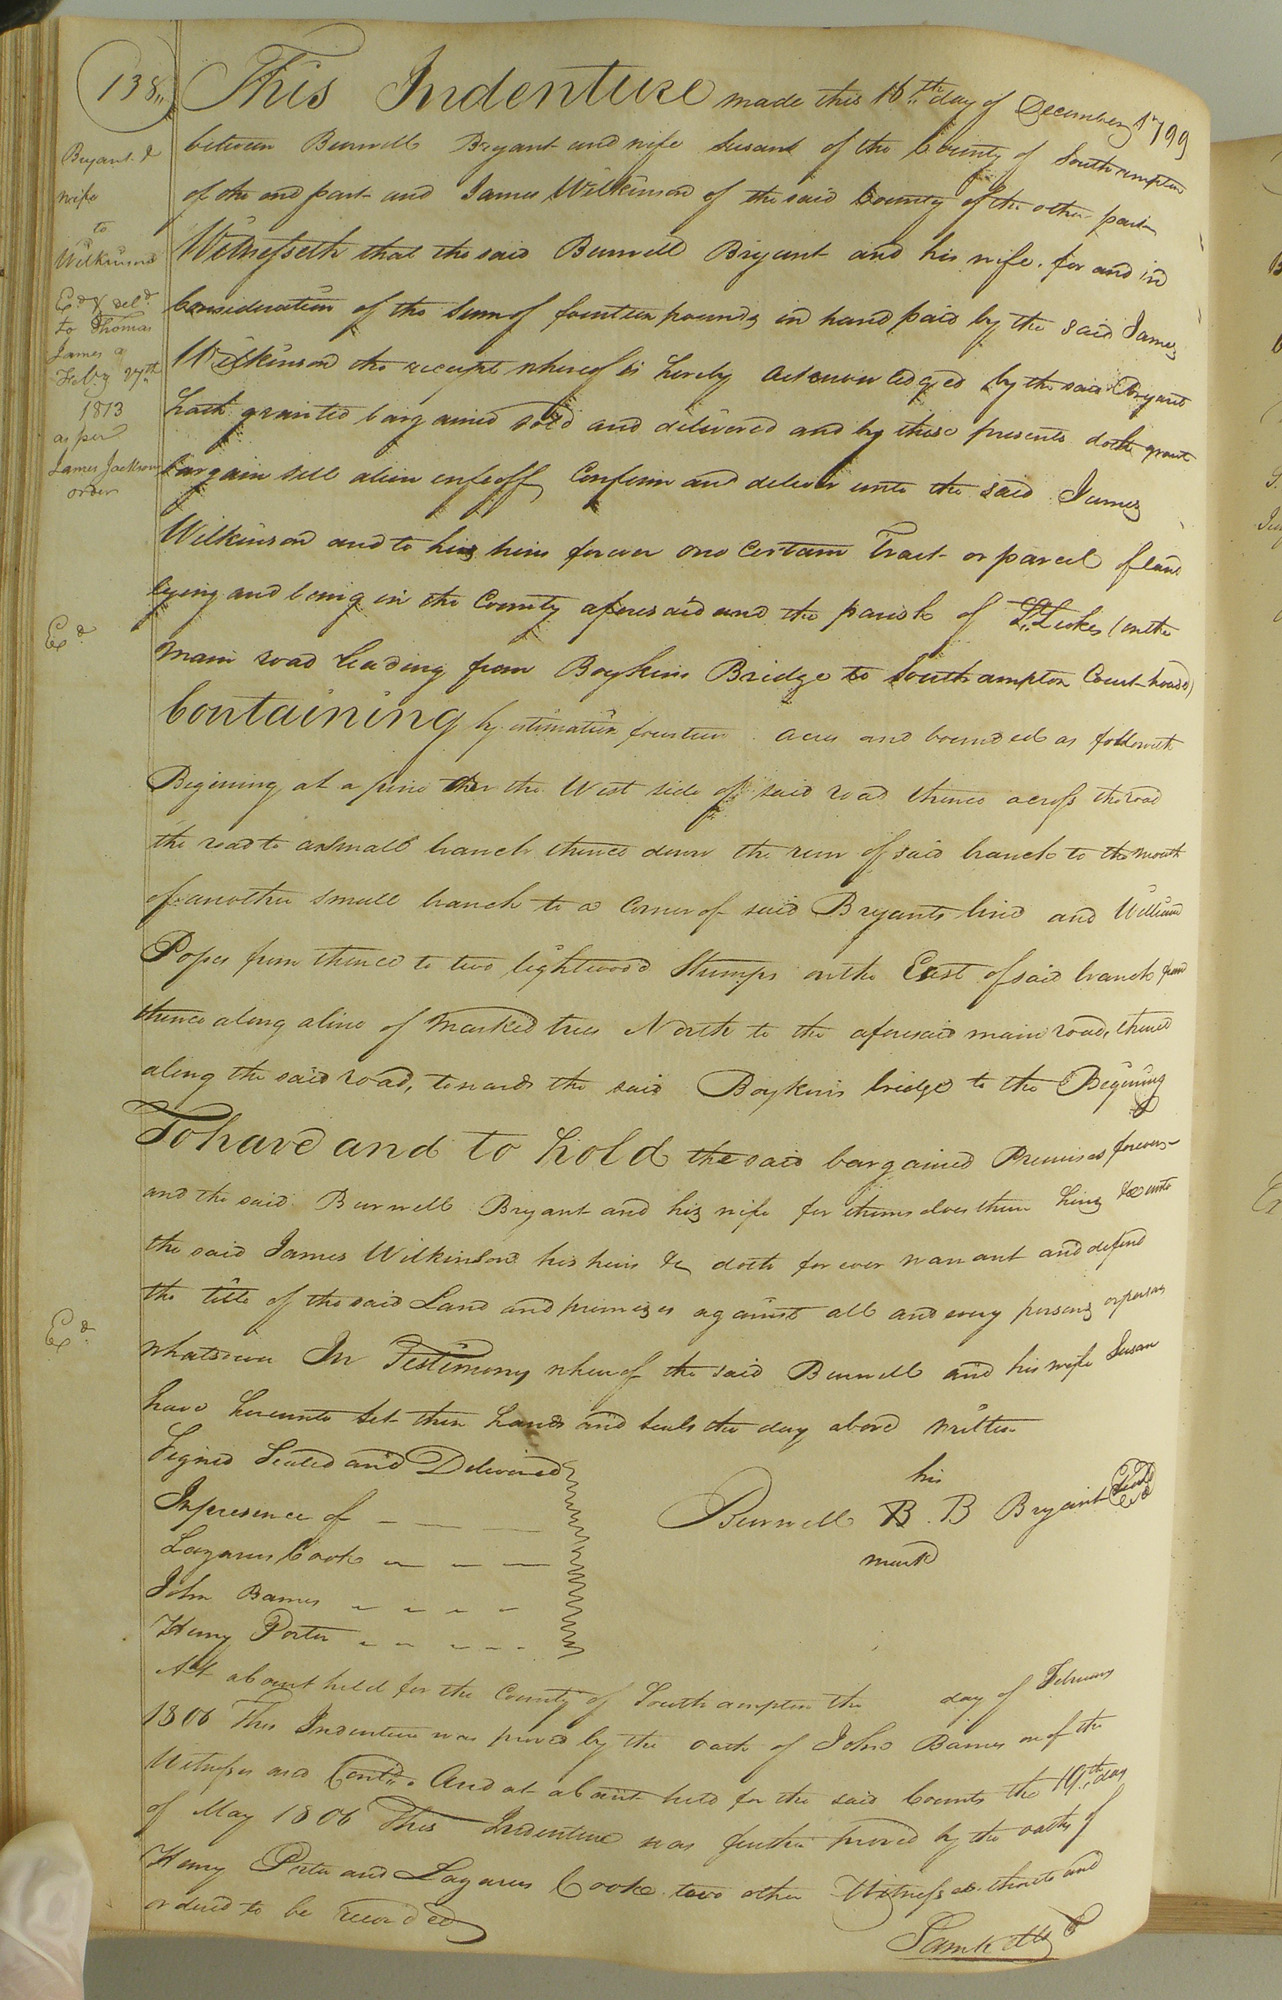 138
Bryant &
wife
to
Wilkinson
Exd & deld
to Thomas
James a
Feby 27th
1813
as per
James Jackson
order
Exd
Exd
This Indenture made this 16th day of December 1799
between Burwell Bryant and wife Susan of the County of Southampton
of the one part and James Wilkinson of the said County of the other part
Witnesseth that the said Burwell Bryant and his wife for and in
Consideration of the Sum of fourteen pounds in hand paid by the said James
Wilkinson the receipt whereof is hereby acknowledged by the said Bryant
hath granted bargained sold and delivered and by these presents doth grant
bargain sell alien enfeoff Confirm and deliver unto the said James
Wilkinson and to his heirs forever one certain Tract or parcel of land
lying and being in the County aforesaid and the parish of St Lukes (on the
main road leading from Boykins Bridge to Southampton Court-house)
Containing by estimation fourteen acres and bounded as followeth
Begining at a pine on the West side of said road thence across the road
the road to a small branch thence down the run of said branch to the mouth
of another small branch to a corner of said Bryants line and William
Popes from thence to two lightwood Stumps on the East of said branch from
thence along a line of marked trees North to the aforesaid main road, thence
along the said road, towards the said Boykins bridge to the Begining
To have and to hold the said bargained Premises forever
and the said Burwell Bryant and his wife for themselves their heirs &c unto
the said James Wilkinson his heirs &c doth forever warrant and defend
the title of the said Land and premises against all and every persons or person
whatsoever In Testimony whereof the said Burwell and his wife Susan
have hereunto set their hands and seals the day above written
Signed Sealed and Delivered
In presence of
Lazarus Cook
John Barnes
Henry Porter
his
Burwell B. B Bryant Seal
mark
At a Court held for the County of Southampton the day of February
1806 This Indenture was proved by the oath of John Barnes one of the
Witnesses and Contd. And at a Court held for the said County the 19th day
of May 1806 This Indenture was further proved by the oaths of
Henry Porter and Lazarus Cooke two other Witnesses thereto and
ordered to be recorded
Saml Kello C